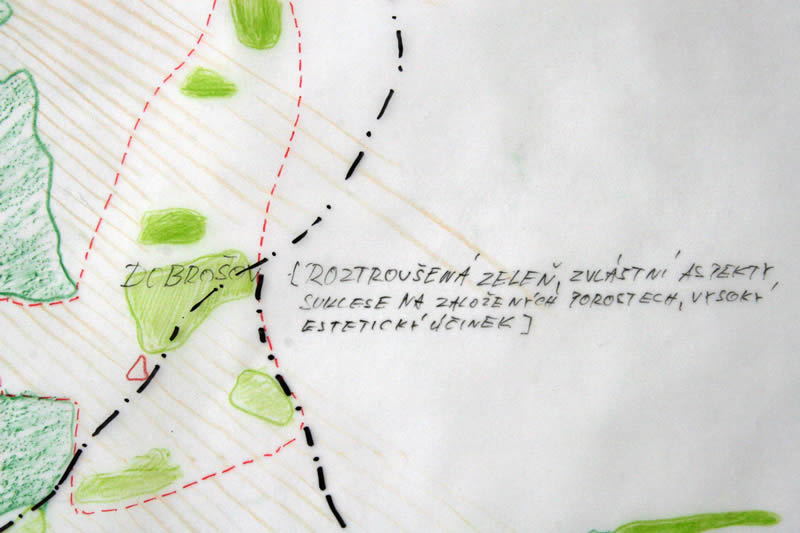 DOBROŠOV [ROZTROUŠENÁ ZELEŇ, ZVLÁSTNÍ ASPEKTY,
SUKCESE NA ZALOŽENÝCH POROSTECH, VYSOKÝ
ESTETICKÝ ÚČINEK]